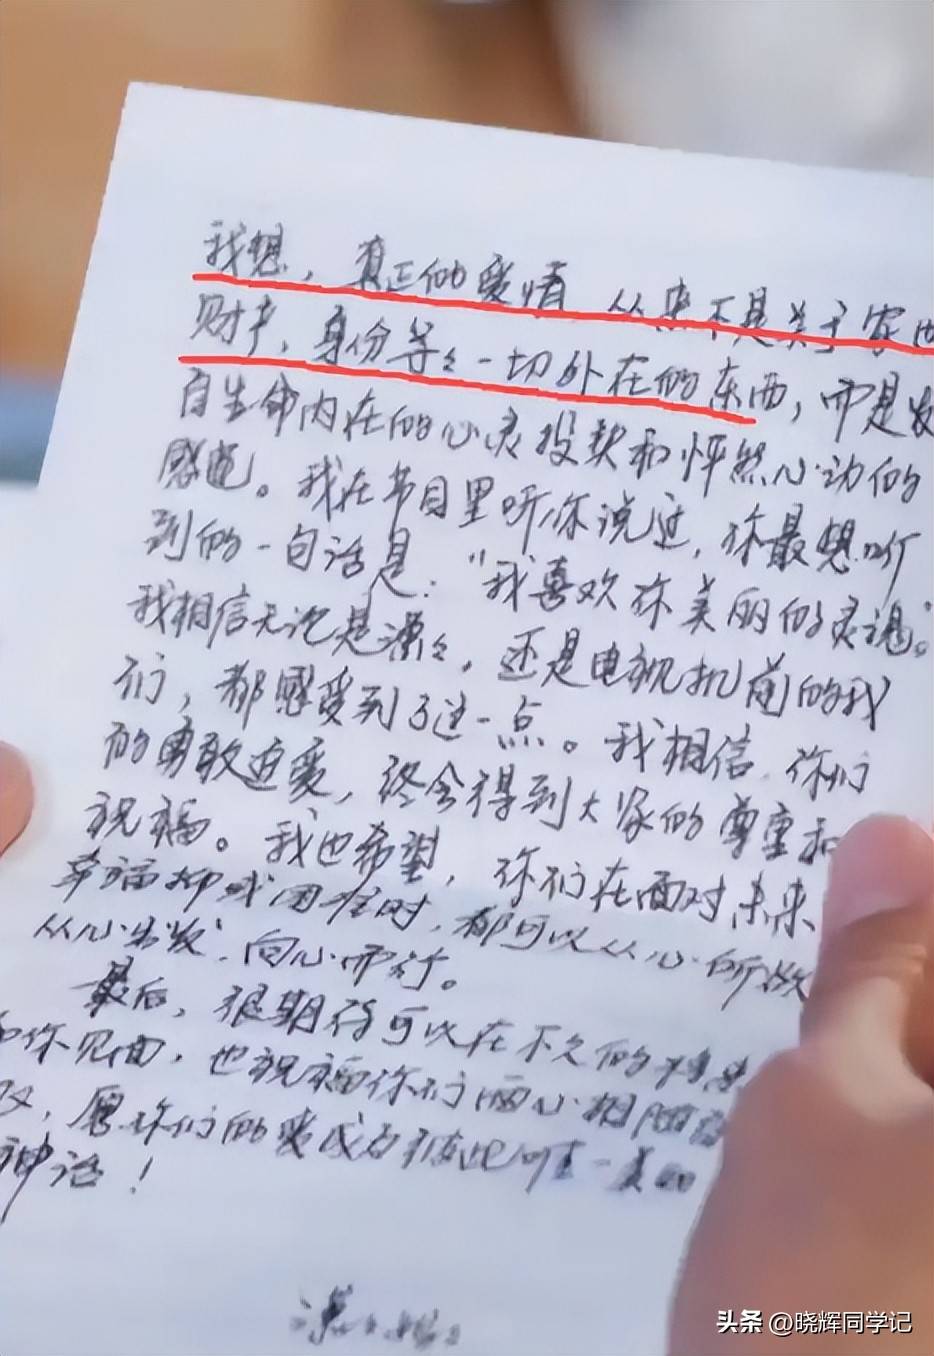 我想，真正的爱情 从来不是关于家世
财产，身份等等一切外在的东西，而是发
自生命内在的心灵投契和怦然心动的
感道。我在节目里听你说过，你最想听
到的一句话是：“我喜欢你美丽的灵魂。”
我相信无论是漂々，还是电视机前的我
们，都感受到了这一点。我相信，你们
的勇敢追爱，终会得到大家的尊重和
祝福。我也希望，你们在面对未来
幸福抑或困难时，都可以从心所欲
从心出发，向心而行。
最后，很期待可以在不久的将来
和你见面，也祝福你们两心相随
双，愿你们的爱成为彼此唯一美的
神话！
头条 @晓辉同学记